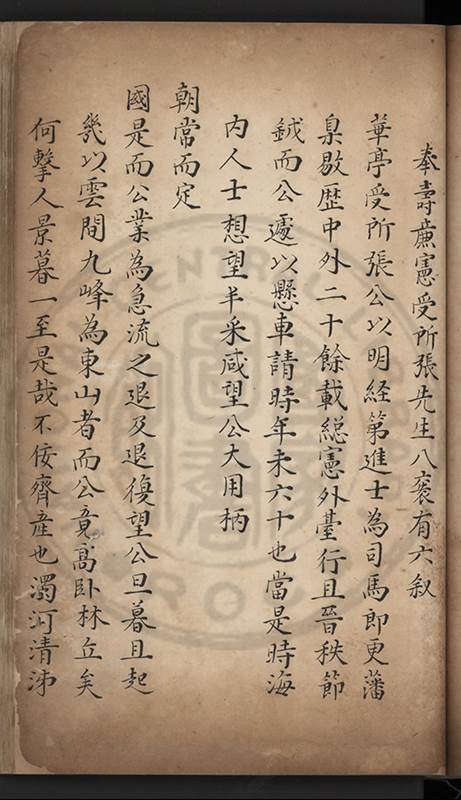 奉壽廉憲受所張先生八袠有六叙
華亭受所張公以明経第進士為司馬郎更藩
臬敭歴中外二十餘載總憲外䑓行且晉秩節
鉞而公遽以懸車請時年未六十也當是時海
内人士想望丰采咸望公大用柄
朝常而定
國是而公業為急流之退及退復望公旦暮且起
幾以雲間九峰為東山者而公竟髙卧林丘矣
何擊人景慕一至是哉不佞齊産也濁河清泲